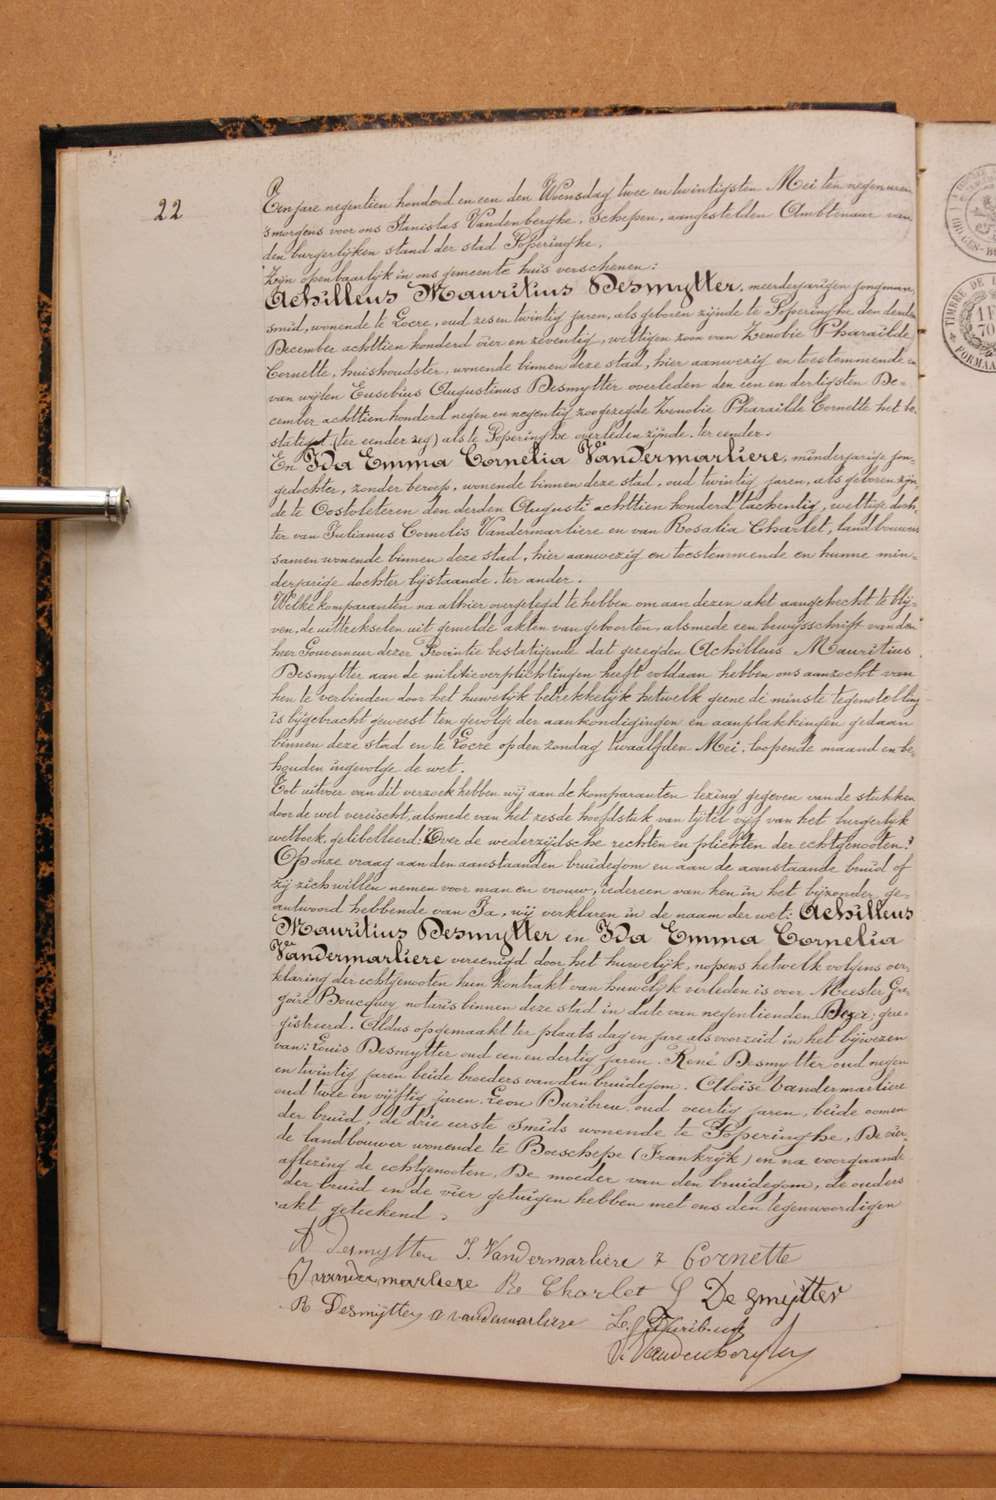 22
Ten jare negentien honderd en een den Woensdag twee en twintigsten Mei ten negen uren
's morgens voor ons Stanislas Vandenberghe, Schepen, aangestelden Ambtenaar van
den burgerlijken stand der stad Poperinghe,
Zijn openbaarlijk in ons gemeente huis verschenen:
Achilleus Mauritius Desmytter, meerderjarigen jongman,
smid, wonende te Locre, oud zes en twintig jaren, als geboren zijnde te Poperinghe den derden
December achttien honderd vier en zeventig, wettigen zoon van Zenobie Pharaïlde
Cornette, huishoudster, wonende binnen deze stad, hier aanwezig en toestemmende en
van wijlen Eusebius Augustinus Desmytter overleden den een en dertigsten De-
cember achttien honderd negen en negentig zoo gezegde Zenobie Pharaïlde Cornette het be-
statigt (ter eender zeg) als te Poperinghe overleden zijnde. ter eender.
En Ida Emma Cornelia Vandermarliere, minderjarige jon-
gedochter, zonder beroep, wonende binnen deze stad, oud twintig jaren, als geboren zijn-
de te Oostvleteren den derden Augusti achttien honderd tachentig, wettige doch-
ter van Julianus Cornelis Vandermarliere en van Rosalia Charlet, landbouwers
samen wonende binnen deze stad, hier aanwezig en toestemmende en hunne min-
derjarige dochter bijstaande. ter ander.
Welke komparanten na alhier overgelegd te hebben om aan dezen akt aangehecht te blij-
ven, de uittrekselen uit gemelde akten van geboorten, alsmede een bewijsschrift van den
heer Gouverneur dezer Provintie bestatigende dat gezegden Achilleus Mauritius
Desmytter aan de militieverplichtingen heeft voldaan hebben ons aanzocht van
hen te verbinden door het huwelijk betrekkelijk hetwelk geene de minste tegenstelling
is bijgebracht geweest ten gevolge der aankondigingen en aanplakkingen gedaan
binnen deze stad en te Locre op den zondag twaalfden Mei, loopende maand en be-
houden ingevolge de wet.
Tot uitvoer van dit verzoek hebben wij aan de komparanten lezing gegeven van de stukken
door de wet vereischt, alsmede van het zesde hoofdstuk van tijtel vijf van het burgerlijk
wetboek, gelibelleerd: "Over de wederzijdsche rechten en plichten der echtgenooten."
Op onze vraag aan den aanstaanden bruidegom en aan de aanstaande bruid of
zij zich willen nemen voor man en vrouw, iedereen van hen in het bijzonder ge-
antwoord hebbende van Ja, wij verklaren in de naam der wet: Achilleus
Mauritius Desmytter en Ida Emma Cornelia
Vandermarliere vereenigd door het huwelijk, nopens hetwelk volgens ver-
klaring der echtgenooten hun kontrakt van huwelijk verleden is voor Meester Gre-
goire Boucquey notaris binnen deze stad in date van negentienden Dezer, gere-
gistreerd. Aldus opgemaakt ter plaats dag en jare als voorzeid in het bijwezen
van: Louis Desmytter oud een en dertig jaren. René Desmytter oud negen
en twintig jaren beide broeders van den bruidegom. Aloïse Vandermarliere
oud twee en vijftig jaren. Leon Duribreu oud veertig jaren, beide oomen
der bruid, de drie eerste smids wonende te Poperinghe, De vier-
de landbouwer wonende te Boeschepe (Frankrijk) en na voorgaande
aflezing de echtgenooten, De moeder van den bruidegom, de ouders
der bruid en de vier getuigen hebben met ons den tegenwoordigen
akt geteekend.
A Desmytter I. Vandermarliere z Cornette
J vandermarliere Ro Charlet L De Smijtter
R Desmijtter a vandermarliere Le Duribreu
Vandenberghe